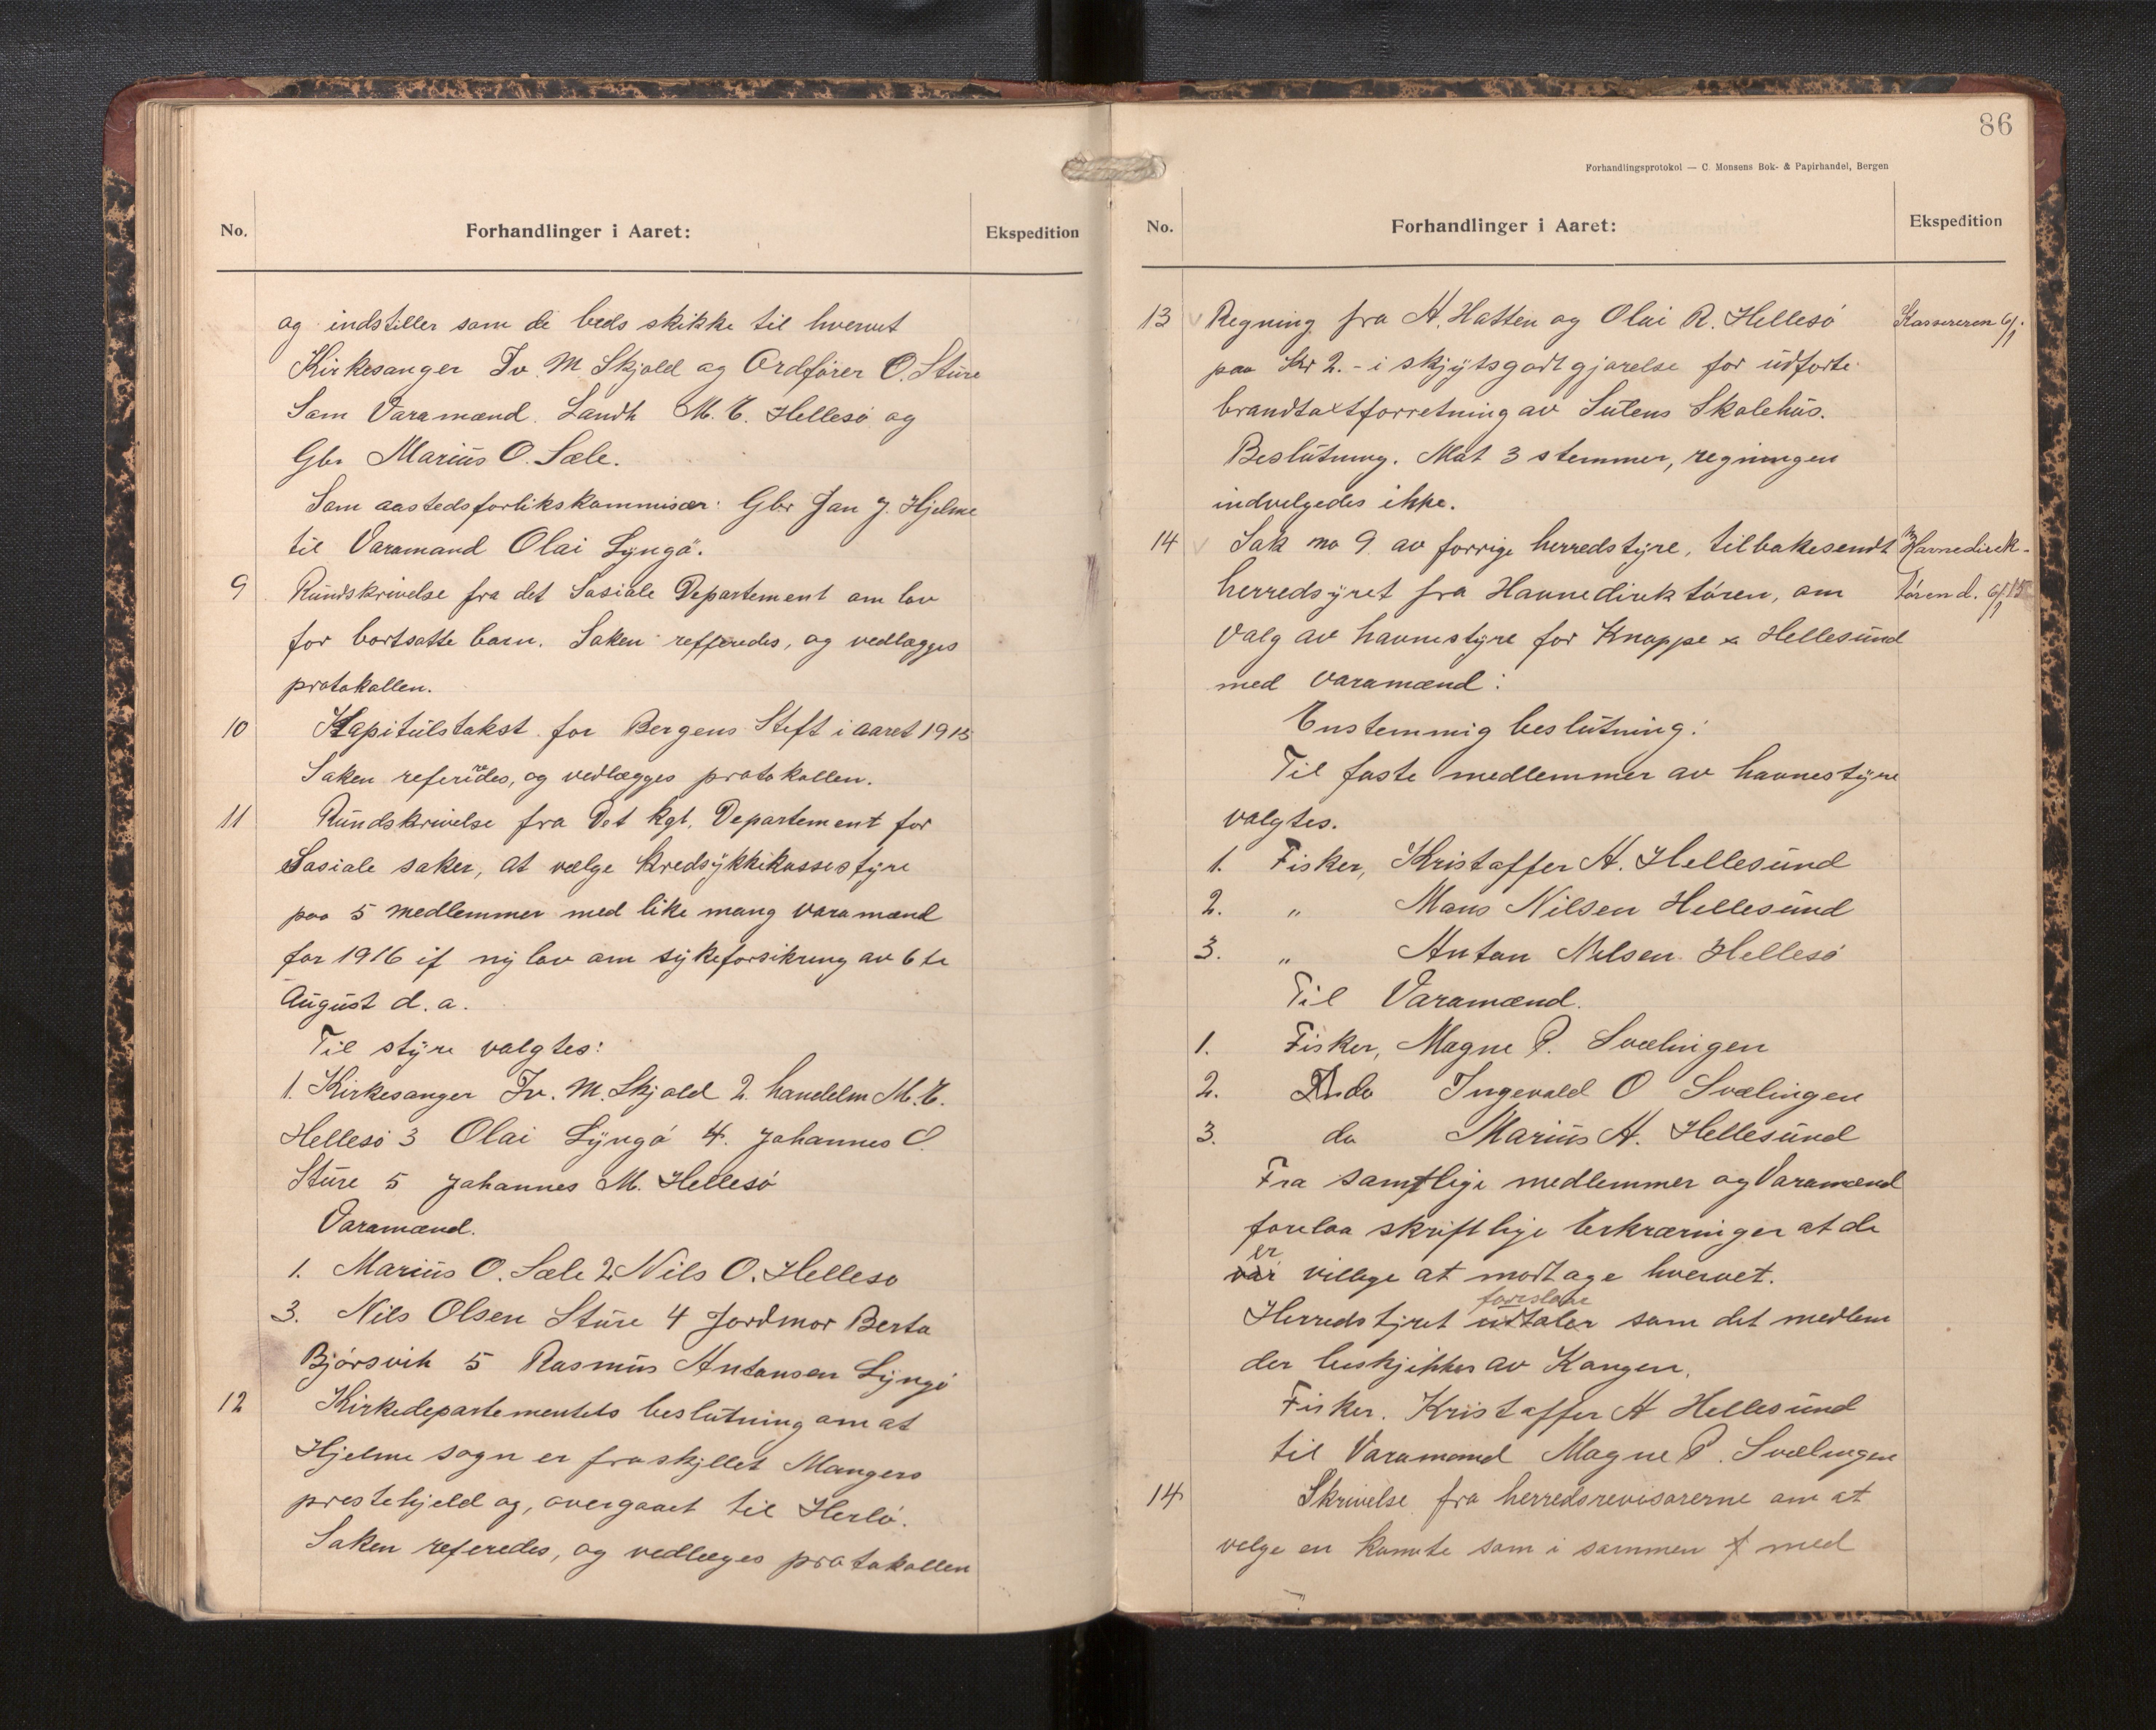 No.
Forhandlinger i Aaret:
Ekspedition
og indstiller som de beds skikke til hvervet
Kirkesanger Iv. M Skjold og Ordfører O. Sture
Som Varamænd. Landh M. E. Hellesø og
Gbr Marius O. Sæle.
Som aastedsforlikskommisær: Gbr Jan J. Hjelme
til Varamand Olai Lyngø.
9 Rundskrivelse fra det Sosiale Departement om lov
for bortsatte barn. Saken refferedes, og vedlægges
protokollen.
10 Kapitulstakst for Bergens Stift i aaret 1915
Saken refereredes, og vedlægges protokollen.
11 Rundskrivelse fra Det kgl. Departement for
Sosiale saker, at vælge kredsykkikassestyre
paa 5 medlemmer med like mang varamænd
for 1916 if ny lov om sykeforsikring av 6te
August d. a.
Til styre valgtes:
1. Kirkesanger Iv. M. Skjold 2. handelm M. E.
Hellesø 3 Olai Lyngø 4. Johannes O.
Sture 5 Johannes M. Hellesø
Varamænd.
1. Marius O. Sæle 2. Nils O. Hellesø
3. Nils Olsen Sture 4 Jordmor Berta
Bjørsvik 5 Rasmus Antonsen Lyngø
12 Kirkedepartementets beslutning om at
Hjelme sogn er fraskjllet Mangers
prestehjeld og, overgaaet til Herlø.
Saken referedes, og vedlæges protokollen
86
Forhandlingsprotokol — C. Monsens Bok- & Papirhandel, Bergen
No.
Forhandlinger i Aaret:
Ekspedition
13 Regning fra A. Hatten og Olai R. Hellesø Kassereren 6/1
paa Kr 2.- i skjytsgodtgjørelse for udførte
brandtaxtforretning av Sulens Skolehus.
Beslutning. Mot 3 stemmer, regningen
indvelgedes ikke.
14 Sak no 9. av forrige herredstyre, tilbakesendt Havnedirek-
herredsyret fra Havnedirektøren, om tøren d. 6/1 15
Valg av havnestyre for Knappe & Hellesund
med varamænd:
Enstemmig beslutning:
Til faste medlemmer av havnestyre
valgtes.
1. Fisker, Kristoffer A. Hellesund
2. " Mons Nilsen Hellesund
3. " Anton Nilsen Hellesø
Til Varamænd.
1. Fisker, Magne P. Svælingen
2. do Ingevald O Svælingen
3. do Marius A. Hellesund
Fra samtlige medlemmer og Varamænd
forelaa skriftlige Erkræringer at de
er
var villige at modtage hvervet.
foreslaae
Herredstyret udtaler som det medlem
der beskjikkes av Kongen.
Fisker. Kristoffer A Hellesund
til Varamand Magne P. Svælingen
14 Skrivelse fra herredsrevisorerne om at
velge en komite som i sammen med